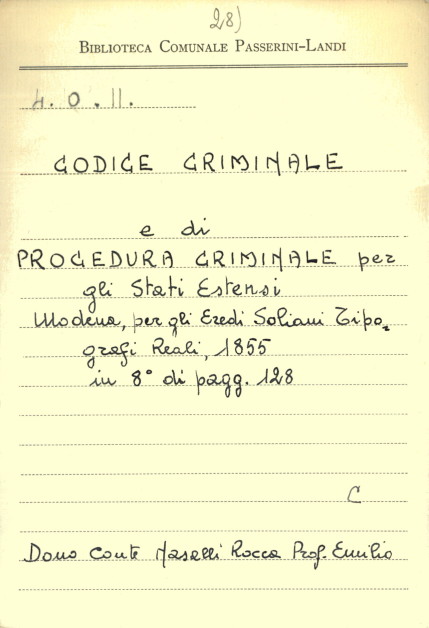 28)
BIBLIOTECA COMUNALE PASSERINI-LANDI
4.O.II.
CODICE CRIMINALE
e di
PROCEDURA CRIMINALE per
gli Stati Estensi
Modena, per gli Eredi Soliani Tipo,
grafi Reali, 1855
in 8° di pagg. 128
C
Dono Conte Nasalli Rocca Prof. Emilio